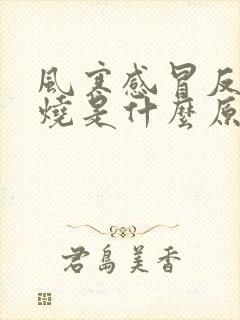 風寒感冒反
燒是什麼原
君島美香